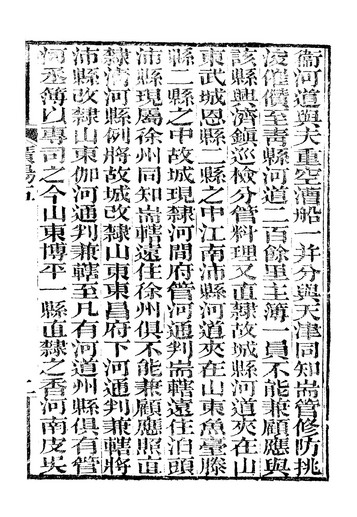 衞河道與夫重空漕船一并分與天津同知耑管修防挑
淺催儹至靑縣河道二百餘里主簿一員不能兼顧應與
該縣興濟鎭巡檢分管料理又直隸故城縣河道夾在山
東武城恩縣二縣之中江南沛縣河道夾在山東魚臺滕
縣二縣之中故城現隸河間府管河通判耑轄遠住泊頭
沛縣現屬徐州同知耑轄遠住徐州俱不能兼顧應照直
隸淸河縣例將故城改隸山東東昌府下河通判兼轄將
沛縣改隸山東伽河通判兼轄至凡有河道州縣俱有管
河丞簿以專司之今山東博平一縣直隸之香河南皮吳